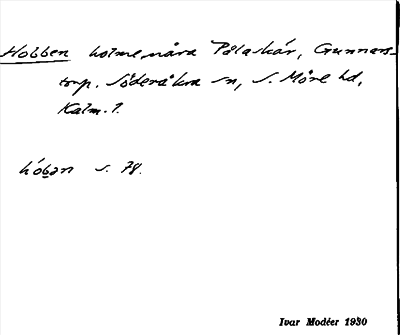 Hobben holme nära Pålaskär, Gunnars-
torp. Söderåkra sn, S. Möre hd,
Kalm. l.
hóbən s. 78.
Ivar Modéer 1930